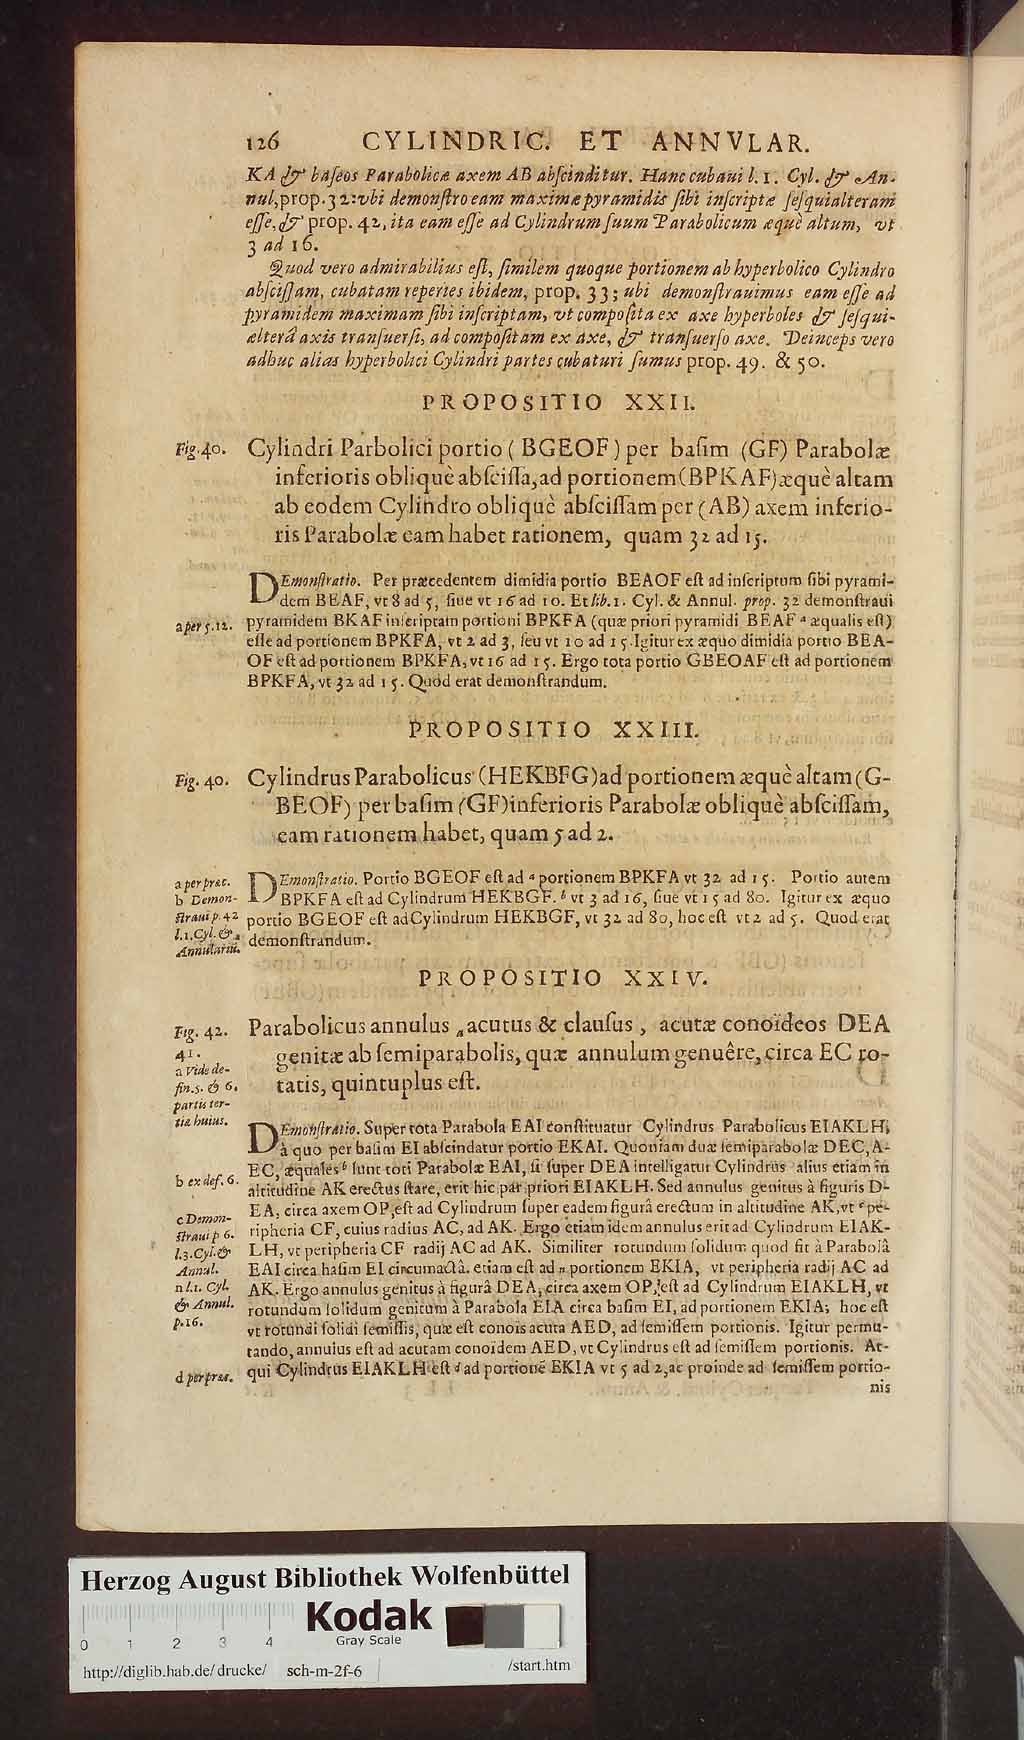 126 CYLINDRIC. ET ANNVLAR.
KA & baſeos Parabolicæ axem AB abſcinditur. Hanc cubaui l. 1. Cyl. & An-
nul, prop. 32: vbi demonſtro eam maximæ pyramidis ſibi inſcriptæ ſeſquialteram
eſſe, & prop. 42, ita eam eſſe ad Cylindrum ſuum Parabolicum æquè altum, vt
3 ad 16.
Quod vero admirabilius eſt, ſimilem quoque portionem ab hyperbolico Cylindro
abſciſſam, cubatam reperies ibidem, prop. 33; ubi demonſtrauimus eam eſſe ad
pyramidem maximam ſibi inſcriptam, vt compoſita ex axe hyperboles & ſeſqui-
alterâ axis tranſuerſi, ad compoſitam ex axe, & tranſuerſo axe. Deinceps vero
adhuc alias hyperbolici Cylindri partes cubaturi ſumus prop. 49. & 50.
PROPOSITIO XXII.
Fig. 40. Cylindri Parbolici portio ( BGEOF ) per baſim (GF) Parabolæ
inferioris obliquè abſciſſa, ad portionem (BPKAF) æquè altam
ab eodem Cylindro obliquè abſciſſam per (AB) axem inferio-
ris Parabolæ eam habet rationem, quam 32 ad 15.
DEmonſtratio. Per præcedentem dimidia portio BEAOF eſt ad inſcriptum ſibi pyrami-
dem BEAF, vt 8 ad 5, ſiue vt 16 ad 10. Et lib. 1. Cyl. & Annul. prop. 32 demonſtraui
a per 5.12. pyramidem BKAF inſcriptam portioni BPKFA (quæ priori pyramidi BEAF a æqualis eſt)
eſſe ad portionem BPKFA, vt 2 ad 3, ſeu vt 10 ad 15. Igitur ex æquo dimidia portio BEA-
OF eſt ad portionem BPKFA, vt 16 ad 15. Ergo tota portio GBEOAF eſt ad portionem
BPKFA, vt 32 ad 15. Quod erat demonſtrandum.
PROPOSITIO XXIII.
Fig. 40. Cylindrus Parabolicus (HEKBFG) ad portionem æquè altam (G-
BEOF) per baſim (GF) inferioris Parabolæ obliquè abſciſſam,
eam rationem habet, quam 5 ad 2.
a per præc. DEmonſtratio. Portio BGEOF eſt ad a portionem BPKFA vt 32 ad 15. Portio autem
b Demon- BPKFA eſt ad Cylindrum HEKBGF. b vt 3 ad 16, ſiue vt 15 ad 80. Igitur ex æquo
ſtraui p. 42 portio BGEOF eſt ad Cylindrum HEKBGF, vt 32 ad 80, hoc eſt vt 2 ad 5. Quod erat
l. 1. Cyl. & demonſtrandum.
Annulariū.
PROPOSITIO XXIV.
Fig. 42. Parabolicus annulus a acutus & clauſus, acutæ conoïdeos DEA
41. genitæ ab ſemiparabolis, quæ annulum genuêre, circa EC ro-
a Vide de- tatis, quintuplus eſt.
fin. 5. & 6.
partis ter-
tiæ huius.
DEmonſtratio. Super tota Parabola EAI conſtituatur Cylindrus Parabolicus EIAKLH,
à quo per baſim EI abſcindatur portio EKAI. Quoniam duæ ſemiparabolæ DEC, A-
b ex def. 6. EC, æquales b ſunt toti Parabolæ EAI, ſi ſuper DEA intelligatur Cylindrus alius etiam in
altitudine AK erectus ſtare, erit hic par priori EIAKLH. Sed annulus genitus à figuris D-
EA, circa axem OP, eſt ad Cylindrum ſuper eadem figurâ erectum in altitudine AK, vt c pe-
c Demon- ripheria CF, cuius radius AC, ad AK. Ergo etiam idem annulus erit ad Cylindrum EIAK-
ſtraui p 6. LH, vt peripheria CF radij AC ad AK. Similiter rotundum ſolidum quod fit à Parabolâ
l. 3. Cyl. & EAI circa baſim EI circumactâ. etiam eſt ad n portionem EKIA, vt peripheria radij AC ad
Annul. AK. Ergo annulus genitus à figurâ DEA, circa axem OP, eſt ad Cylindrum EIAKLH, vt
n l. 1. Cyl. rotundum ſolidum genitum à Parabola EIA circa baſim EI, ad portionem EKIA; hoc eſt
& Annul. vt rotundi ſolidi ſemiſſis, quæ eſt conois acuta AED, ad ſemiſſem portionis. Igitur permu-
p. 16. tando, annulus eſt ad acutam conoïdem AED, vt Cylindrus eſt ad ſemiſſem portionis. At-
d per præc. qui Cylindrus EIAKLH eſt d ad portionē EKIA vt 5 ad 2, ac proinde ad ſemiſſem portio-
nis
Herzog August Bibliothek Wolfenbüttel
Kodak
Gray Scale
0 1 2 3 4
http://diglib.hab.de/drucke/ sch-m-2f-6 /start.htm